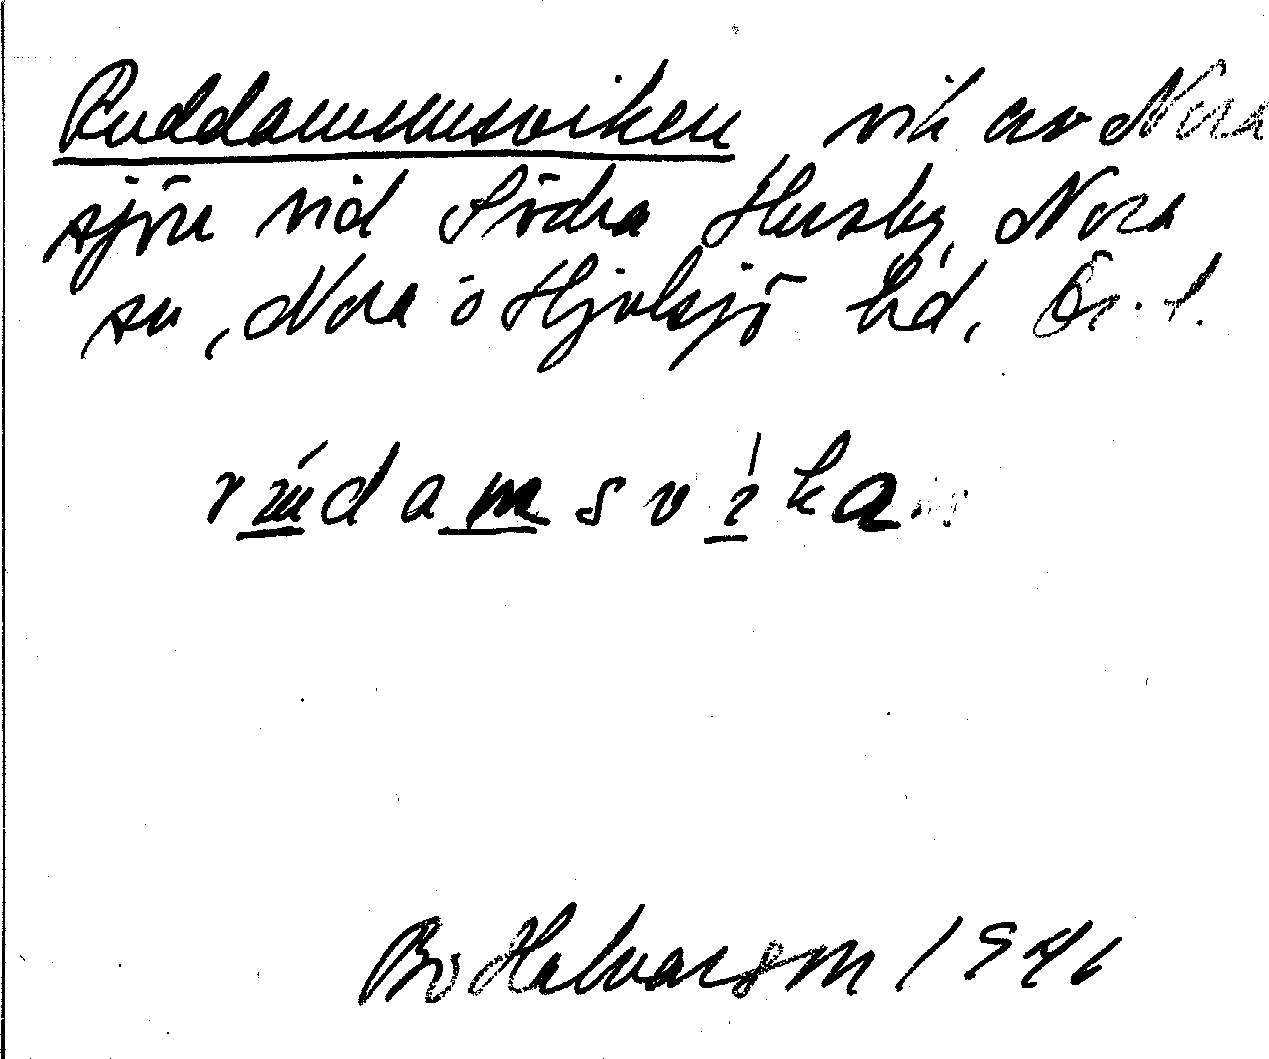 Ruddammsviken vik av Nora
sjön vid Södra Husby, Nora
sn, Nora o Hjulsjö hd, Ör. l.
Bo Halvarson 1946